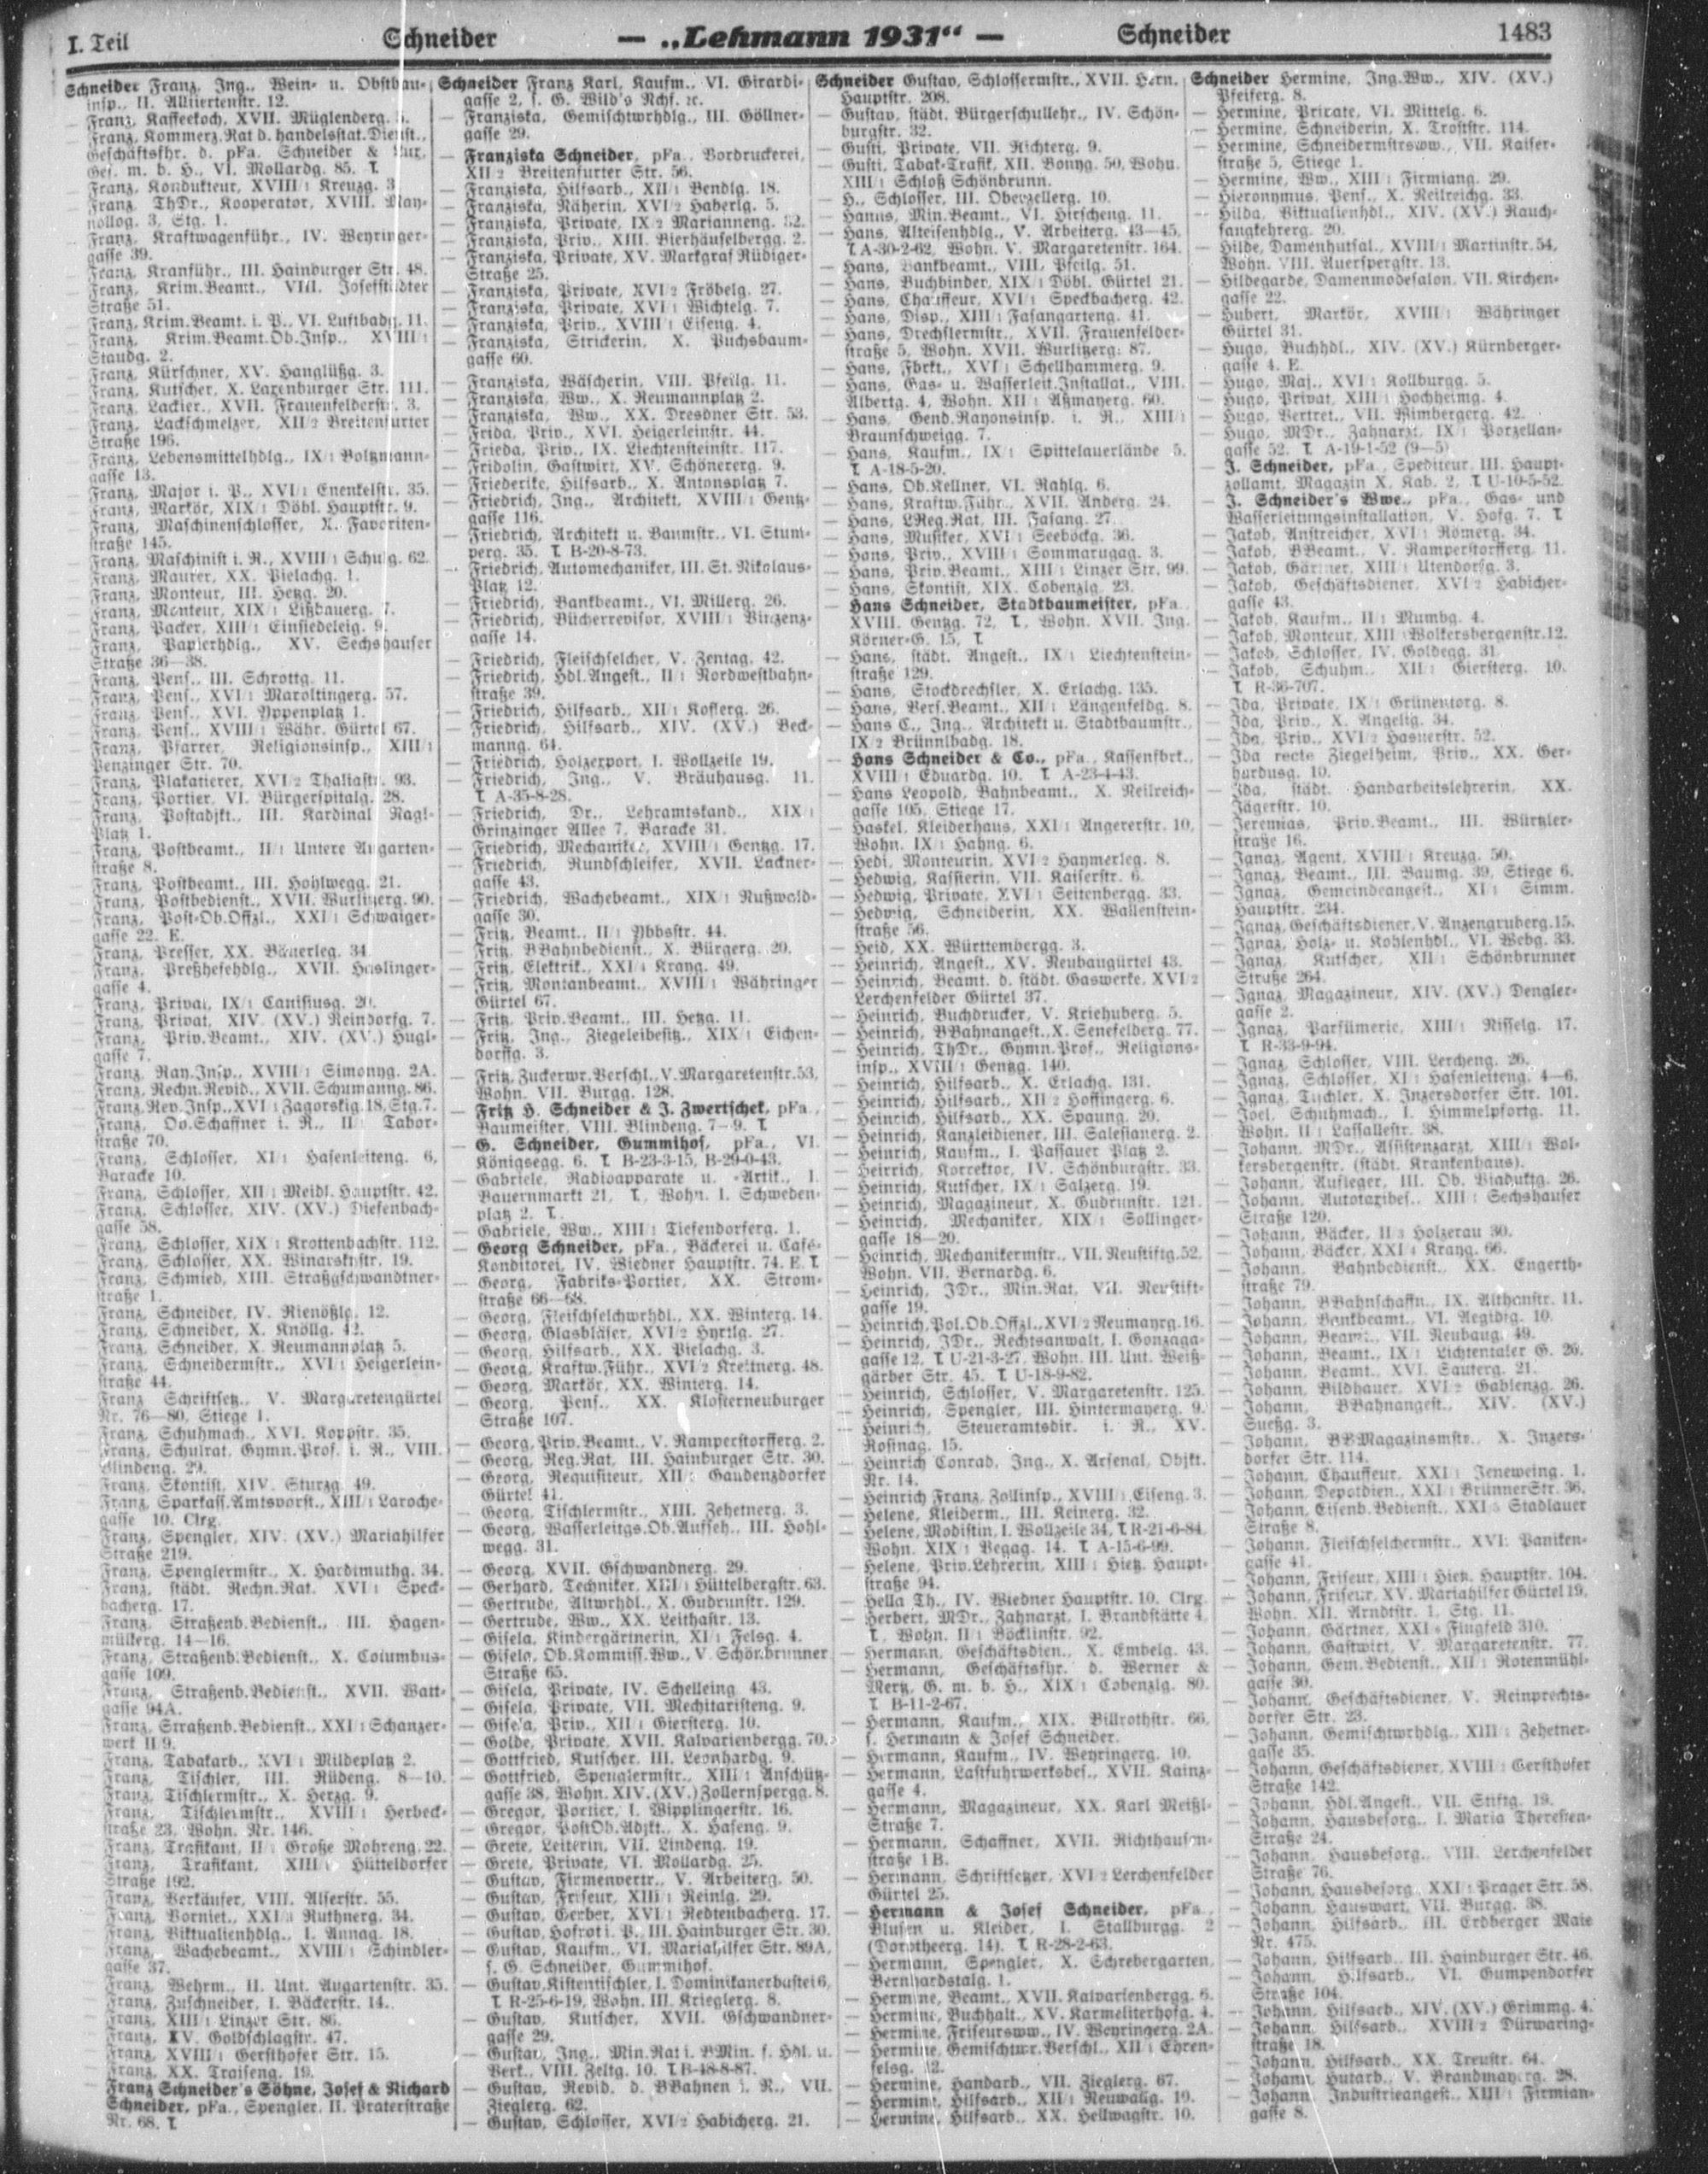 I. Teil Schneider — „Lehmann 1931“ — Schneider 1483
Schneider Franz, Ing., Wein- u. Obstbau-
insp., II. Alliiertenstr. 12.
— Franz, Kaffeekoch, XVII. Müglenderg.
— Franz, Kommerz.Rat d. handelsstat.Dienst.,
Geschäftsfhr. d. pFa. Schneider &
Ges. m. b. H., VI. Mollardg. 85. T.
— Franz, Kondukteur, XVIII/1 Kreuzg. 3
— Franz, ThDr., Kooperator, XVIII. May-
nollog. 3, Stg. 1.
— Franz, Kraftwagenführ., IV. Weyringer-
gasse 39.
— Franz, Kranführ., III. Hainburger Str. 48.
— Franz, Krim.Beamt., VIII. Josefstädter
Straße 51.
— Franz, Krim.Beamt. i. P., VI. Luftbadg. 11.
— Franz, Krim.Beamt.Ob.Insp., XVIII/1
Staudg. 2.
— Franz, Kürschner, XV. Hanglüßg. 3.
— Franz, Kutscher, X. Laxenburger Str. 111.
— Franz, Lackier., XVII. Frauenfelderstr. 3.
— Franz, Lackschmelzer, XII/2 Breitenfurter
Straße 196.
— Franz, Lebensmittelhdlg., IX/1 Boltzmann-
gasse 13.
— Franz, Major i. P., XVI/1 Enenkelstr. 35.
— Franz, Markör, XIX/1 Döbl. Hauptstr. 9.
— Franz, Maschinenschlosser, X. Favoriten-
straße 145.
— Franz, Maschinist i. R., XVIII/1 Schulg. 62.
— Franz, Maurer, XX. Pielachg. 1.
— Franz, Monteur, III. Hetzg. 20.
— Franz, Monteur, XIX/1 Lißbauerg. 7.
— Franz, Packer, XIII/1 Einsiedeleig. 9.
— Franz, Papierhdlg., XV. Sechshauser
Straße 36—38.
— Franz, Pens., III. Schrottg. 11.
— Franz, Pens., XVI/1 Maroltingerg. 57.
— Franz, Pens., XVI. Yppenplatz 1.
— Franz, Pens., XVIII/1 Währ. Gürtel 67.
— Franz, Pfarrer, Religionsinsp., XIII/1
Penzinger Str. 70.
— Franz, Plakatierer, XVI/2 Thaliastr. 93.
— Franz, Portier, VI. Bürgerspitalg. 28.
— Franz, Postadjkt., III. Kardinal Nagl-
Platz 1.
— Franz, Postbeamt., II/1 Untere Augarten-
straße 8.
— Franz, Postbeamt., III. Hohlwegg. 21.
— Franz, Postbedienst., XVII. Wurlitzerg. 90.
— Franz, Post-Ob.Offzl., XXI/1 Schwaiger-
gasse 22. E.
— Franz, Presser, XX. Bäuerleg. 34
— Franz, Preßhefehdlg., XVII. Haslinger-
gasse 4.
— Franz, Privat, IX/1 Canisiusg. 20.
— Franz, Privat, XIV. (XV.) Reindorfg. 7.
— Franz, Priv.Beamt., XIV. (XV.) Hugl-
gasse 7.
— Franz, Ray.Insp., XVIII/1 Simonyg. 2A.
— Franz, Rechn.Revid., XVII. Schumanng. 86.
— Franz, Rev.Insp., XVI/1 Zagorskig. 18, Stg. 7.
— Franz, Ob.Schaffner i. R., II/1 Tabor-
straße 70.
— Franz, Schlosser, XI/1 Hasenleiteng. 6,
Baracke 10.
— Franz, Schlosser, XII/1 Meidl. Hauptstr. 42.
— Franz, Schlosser, XIV. (XV.) Diefenbach-
gasse 58.
— Franz, Schlosser, XIX/1 Krottenbachstr. 112.
— Franz, Schlosser, XX. Winarskystr. 19.
— Franz, Schmied, XIII. Straßgschwandtner-
straße 1.
— Franz, Schneider, IV. Rienößlg. 12.
— Franz, Schneider, X. Knöllg. 42.
— Franz, Schneider, X. Neumannplatz 5.
— Franz, Schneidermstr., XVI/1 Heigerlein-
straße 44.
— Franz Schriftsetz., V. Margaretengürtel
Nr. 76—80, Stiege 1.
— Franz, Schuhmach., XVI. Koppstr. 35.
— Franz, Schulrat, Gymn.Prof. i. R., VIII.
Blindeng. 29.
— Franz, Skontist, XIV. Sturzg. 49.
— Franz, Sparkass.Amtsvorst., XIII/1 Laroche-
gasse 10. Clrg.
— Franz, Spengler, XIV. (XV.) Mariahilfer
Straße 219.
— Franz, Spenglermstr., X. Hardtmuthg. 34.
— Franz, städt. Rechn.Rat, XVI/1 Speck-
bacherg. 17.
— Franz, Straßenb.Bedienst., III. Hagen-
müllerg. 14—16.
— Franz, Straßenb.Bedienst., X. Columbus-
gasse 109.
— Franz, Straßenb.Bedienst., XVII. Watt-
gasse 94A.
— Franz, Straßenb.Bedienst., XXI/1 Schanzer-
werk II/9.
— Franz, Tabakarb., XVI/1 Mildeplatz 2.
— Franz, Tischler, III. Rüdeng. 8—10.
— Franz, Tischlermstr., X. Herzg. 9.
— Franz, Tischlermstr., XVIII/1 Herbeck-
straße 23, Wohn. Nr. 146.
— Franz, Trafikant, II/1 Große Mohreng. 22.
— Franz, Trafikant, XIII/ Hütteldorfer
Straße 192.
— Franz, Verkäufer, VIII. Alserstr. 55.
— Franz, Borniet., XXI/3 Ruthnerg. 34.
— Franz, Viktualienhdlg., I. Annag. 18.
— Franz, Wachebeamt., XVIII/1 Schindler-
gasse 37.
— Franz, Wehrm., II. Unt. Augartenstr. 35.
— Franz, Zuschneider, I. Bäckerstr. 14.
— Franz, XIII/1 Linzer Str. 86.
— Franz, XV. Goldschlagstr. 47.
— Franz, XVIII/1 Gersthofer Str. 15.
— Franz, XX. Traiseng. 19.
— Franz Schneider's Söhne, Josef & Richard
Schneider, pFa., Spengler, II. Praterstraße
Nr. 68. T.
Schneider Franz Karl, Kaufm., VI. Girardi-
gasse 2, s. G. Wild's Nchf. rc.
— Franziska, Gemischtwrhdlg., III. Göllner-
gasse 29.
— Franziska Schneider, pFa., Vordruckerei,
XII/2 Breitenfurter Str. 56.
— Franziska, Hilfsarb., XII/1 Bendlg. 18.
— Franziska, Näherin, XVI/2 Haberlg. 5.
— Franziska, Private, IX/2 Marianneng. 32.
— Franziska, Priv., XIII. Bierhäuselbergg. 2.
— Franziska, Private, XV. Markgraf Rüdiger-
Straße 25.
— Franziska, Private, XVI/2 Fröbelg. 27.
— Franziska, Private, XVI/1 Wichtelg. 7.
— Franziska, Priv., XVIII/1 Eiseng. 4.
— Franziska, Strickerin, X. Puchsbaum-
gasse 60.
— Franziska, Wäscherin, VIII. Pfeilg. 11.
— Franziska, Ww., X. Neumannplatz 2.
— Franziska, Ww., XX. Dresdner Str. 53.
— Frida, Priv., XVI. Heigerleinstr. 44.
— Frieda, Priv., IX. Liechtensteinstr. 117.
— Fridolin, Gastwirt, XV. Schönererg. 9.
— Friederike, Hilfsarb., X. Antonsplatz 7.
— Friedrich, Ing., Architekt, XVIII/1 Gentz-
gasse 116.
— Friedrich, Architekt u. Baumstr., VI. Stum-
perg. 35. T. B-20-8-73.
— Friedrich, Automechaniker, III. St. Nikolaus-
Platz 12.
— Friedrich, Bankbeamt., VI. Millerg. 26.
— Friedrich, Bücherrevisor, XVIII/1 Vinzenz-
gasse 14.
— Friedrich, Fleischselcher, V. Zentag. 42.
— Friedrich, Hdl.Angest., II/1 Nordwestbahn-
straße 39.
— Friedrich, Hilfsarb., XII/1 Kofferg. 26.
— Friedrich, Hilfsarb., XIV. (XV.) Beck-
manng. 64.
— Friedrich, Holzexport, I. Wollzeile 19.
— Friedrich, Ing., V. Bräuhausg. 11.
T. A-35-8-28.
— Friedrich, Dr., Lehramtskand., XIX/1
Grinzinger Allee 7, Baracke 31.
— Friedrich, Mechaniker, XVIII/1 Gentzg. 17.
— Friedrich, Rundschleifer, XVII. Lackner-
gasse 43.
— Friedrich, Wachebeamt., XIX/1 Nußwald-
gasse 30.
— Fritz, Beamt., II/1 Ybbsstr. 44.
— Fritz, BBahnbedienst., X. Bürgerg. 20.
— Fritz, Elektrik., XXI/4 Krang. 49.
— Fritz, Montanbeamt., XVIII/1 Währinger
Gürtel 67.
— Fritz, Priv.Beamt., III. Hetzg. 11.
— Fritz, Ing., Ziegeleibesitz., XIX/1 Eichen-
dorffg. 3.
— Fritz, Zuckerwr.Verschl., V. Margaretenstr. 53,
Wohn. VII. Burgg. 128.
— Fritz H. Schneider & J. Zwertschek, pFa.,
Baumeister, VIII. Blindeng. 7—9. T.
— G. Schneider, Gummihof, pFa., VI.
Königsegg. 6. T. B-23-3-15, B-29-0-43.
— Gabriele, Radioapparate u. -Artik., I.
Bauernmarkt 21, T., Wohn. I. Schweden-
platz 2. T.
— Gabriele, Ww., XIII/1 Tiefendorferg. 1.
— Georg Schneider, pFa., Bäckerei u. Café-
Konditorei, IV. Wiedner Hauptstr. 74. E. T.
— Georg, Fabriks-Portier, XX. Strom-
straße 66—68.
— Georg, Fleischselchwrhdl., XX. Winterg. 14.
— Georg, Glasbläser, XVI/2 Hyrtlg. 27.
— Georg, Hilfsarb., XX. Pielachg. 3.
— Georg, Kraftw.Führ., XVI/2 Kreitnerg. 48.
— Georg, Markör, XX. Winterg. 14.
— Georg, Pens., XX. Klosterneuburger
Straße 107.
— Georg, Priv.Beamt., V. Ramperstorfferg. 2.
— Georg, Reg.Rat, III. Hainburger Str. 30.
— Georg, Requisiteur, XII/ Gaudenzdorfer
Gürtel 41.
— Georg, Tischlermstr., XIII. Zehetnerg. 3.
— Georg, Wasserleitgs.Ob.Aufseh., III. Hohl-
wegg. 31.
— Georg, XVII. Gschwandnerg. 29.
— Gerhard, Techniker, XIII/1 Hüttelbergstr. 63.
— Gertrude, Altwrhdl., X. Gudrunstr. 129.
— Gertrude, Ww., XX. Leithastr. 13.
— Gisela, Kindergärtnerin, XI/1 Felsg. 4.
— Gisela, Ob.Kommiss.Ww., V. Schönbrunner
Straße 65.
— Gisela, Private, IV. Schelleing. 43.
— Gisela, Private, VII. Mechitaristeng. 9.
— Gisela, Priv., XII/1 Giersterg. 10.
— Golde, Private, XVII. Kalvarienbergg. 70.
— Gottfried, Kutscher, III. Leonhardg. 9.
— Gottfried, Spenglermstr., XIII/1 Anschütz-
gasse 38, Wohn. XIV. (XV.) Zollernspergg. 8.
— Gregor, Portier, I. Wipplingerstr. 16.
— Gregor, PostOb.Adjkt., X. Haseng. 9.
— Grete, Leiterin, VII. Lindeng. 19.
— Grete, Private, VI. Mollardg. 25.
— Gustav, Firmenvertr., V. Arbeiterg. 50.
— Gustav, Friseur, XIII/1 Reinlg. 29.
— Gustav, Gerber, XVI/1 Redtenbacherg. 17.
— Gustav, Hofrat i. P., III. Hainburger Str. 30.
— Gustav, Kaufm., VI. Mariahilfer Str. 89A,
s. G. Schneider, Gummihof.
— Gustav, Kistentischler, I. Dominikanerbastei 6,
T. R-25-6-19, Wohn. III. Krieglerg. 8.
— Gustav, Kutscher, XVII. Gschwandner-
gasse 29.
— Gustav, Ing., Min.Rat i. BMin. f. Hdl. u.
Verk., VIII. Zeltg. 10. T. B-48-8-87.
— Gustav, Revid. d. BBahnen i. R., VII.
Zieglerg. 62.
— Gustav, Schlosser, XVI/2 Habicherg. 21.
Schneider Gustav, Schlossermstr., XVII. Hern.
Hauptstr. 208.
— Gustav, städt. Bürgerschullehr., IV. Schön-
burgstr. 32.
— Gusti, Private, VII. Richterg. 9.
— Gusti, Tabak-Trafik, XII. Bonyg. 50, Wohn.
XIII/1 Schloß Schönbrunn.
— H., Schlosser, III. Oberzellerg. 10.
— Hanns, Min.Beamt., VI. Hirscheng. 11.
— Hans, Alteisenhdlg., V. Arbeiterg. 43—45,
T. A-30-2-62, Wohn. V. Margaretenstr. 164.
— Hans, Bankbeamt., VIII. Pfeilg. 51.
— Hans, Buchbinder, XIX/1 Döbl. Gürtel 21.
— Hans, Chauffeur, XVI/1 Speckbacherg. 42.
— Hans, Disp., XIII/1 Fasangarteng. 41.
— Hans, Drechslermstr., XVII. Frauenfelder-
straße 5, Wohn. XVII. Wurlitzerg. 87.
— Hans, Fbrkt., XVI/1 Schellhammerg. 9.
— Hans, Gas- u. Wasserleit.Installat., VIII.
Albertg. 4, Wohn. XII/1 Aßmayerg. 60.
— Hans, Gend.Rayonsinsp. i. R., XIII/1
Braunschweigg. 7.
— Hans, Kaufm., IX/1 Spittelauerlände 5.
T. A-18-5-20.
— Hans, Ob.Kellner, VI. Rahlg. 6.
— Hans, Kraftw.Führ., XVII. Anderg. 24.
— Hans, LReg.Rat, III. Fasang. 27.
— Hans, Musiker, XVI/1 Seeböckg. 36.
— Hans, Priv., XVIII/1 Sommarugag. 3.
— Hans, Priv.Beamt., XIII/1 Linzer Str. 99.
— Hans, Skontist, XIX. Cobenzlg. 23.
— Hans Schneider, Stadtbaumeister, pFa.,
XVIII. Gentzg. 72, T., Wohn. XVII. Ing.
Körner-G. 15, T.
— Hans, städt. Angest., IX/1 Liechtenstein-
straße 129.
— Hans, Stockdrechsler, X. Erlachg. 135.
— Hans, Vers.Beamt., XII/1 Längenfeldg. 8.
— Hans C., Ing., Architekt u. Stadtbaumstr.,
IX/2 Brünnlbadg. 18.
— Hans Schneider & Co., pFa., Kassenfbrt.,
XVIII/1 Eduardg. 10. T. A-23-4-43.
— Hans Leopold, Bahnbeamt., X. Neilreich-
gasse 105, Stiege 17.
— Haskel, Kleiderhaus, XXI/1 Angererstr. 10,
Wohn. IX/1 Hahng. 6.
— Hedi, Monteurin, XVI/2 Haymerleg. 8.
— Hedwig, Kassierin, VII. Kaiserstr. 6.
— Hedwig, Private, XVI/1 Seitenbergg. 33.
— Hedwig, Schneiderin, XX. Wallenstein-
straße 56.
— Heid, XX. Württembergg. 3.
— Heinrich, Angest., XV. Neubaugürtel 43.
— Heinrich, Beamt. d. städt. Gaswerke, XVI/2
Lerchenfelder Gürtel 37.
— Heinrich, Buchdrucker, V. Kriehuberg. 5.
— Heinrich, BBahnangest., X. Senefelderg. 77.
— Heinrich, ThDr., Gymn.Prof., Religions-
insp., XVIII/1 Gentzg. 140.
— Heinrich, Hilfsarb., X. Erlachg. 131.
— Heinrich, Hilfsarb., XII/2 Hoffingerg. 6.
— Heinrich, Hilfsarb., XX. Spaung. 20.
— Heinrich, Kanzleidiener, III. Salesianerg. 2.
— Heinrich, Kaufm., I. Passauer Platz 2.
— Heinrich, Korrektor, IV. Schönburgstr. 33.
— Heinrich, Kutscher, IX/1 Salzerg. 19.
— Heinrich, Magazineur, X. Gudrunstr. 121.
— Heinrich, Mechaniker, XIX/1 Sollinger-
gasse 18—20.
— Heinrich, Mechanikermstr., VII. Neustiftg. 52,
Wohn. VII. Bernardg. 6.
— Heinrich, JDr., Min.Rat, VII. Neustift-
gasse 19.
— Heinrich, Pol.Ob.Offzl., XVI/2 Neumayrg. 16.
— Heinrich, JDr., Rechtsanwalt, I. Gonzaga-
gasse 12, T. U-21-3-27, Wohn. III. Unt. Weiß-
gärber Str. 45. T. U-18-9-82.
— Heinrich, Schlosser, V. Margaretenstr. 125.
— Heinrich, Spengler, III. Hintermayerg. 9.
— Heinrich, Steueramtsdir. i. R., XV.
Rosinag. 15.
— Heinrich Conrad, Ing., X. Arsenal, Objkt.
Nr. 14.
— Heinrich Franz, Zollinsp., XVIII/1 Eiseng. 3.
— Helene, Kleiderm., III. Keinerg. 32.
— Helene, Modistin, I. Wollzeile 34, T. R-21-6-84,
Wohn. XIX/1 Vegag. 14. T. A-15-6-99.
— Helene, Priv.Lehrerin, XIII/1 Hietz. Haupt-
straße 94.
— Hella Th., IV. Wiedner Hauptstr. 10. Clrg.
— Herbert, MDr., Zahnarzt, I. Brandstätte 4,
T., Wohn. II/1 Böcklinstr. 92.
— Hermann, Geschäftsdien., X. Embelg. 43.
— Hermann, Geschäftsfhr. d. Werner &
Mertz, G. m. b. H., XIX/1 Cobenzlg. 80.
T. B-11-2-67.
— Hermann, Kaufm., XIX. Billrothstr. 66,
s. Hermann & Josef Schneider.
— Hermann, Kaufm., IV. Weyringerg. 10.
— Hermann, Lastfuhrwerksbes., XVII. Kainz-
gasse 4.
— Hermann, Magazineur, XX. Karl Meißl-
Straße 7.
— Hermann, Schaffner, XVII. Richthausen-
straße 1B.
— Hermann, Schriftsetzer, XVI/2 Lerchenfelder
Gürtel 25.
— Hermann & Josef Schneider, pFa.,
Blusen u. Kleider, I. Stallburgg. 2
(Dorotheerg. 14). T. R-28-2-63.
— Hermann, Spengler, X. Schrebergarten,
Bernhardstalg. 1.
— Hermine, Beamt., XVII. Kalvarienbergg. 6.
— Hermine, Buchhalt., XV. Karmeliterhofg. 4.
— Hermine, Friseursww., IV. Weyringerg. 2A.
— Hermine, Gemischtwr.Verschl., XII/1 Ehren-
felsg. 12.
— Hermine, Handarb., VII. Zieglerg. 67.
— Hermine, Hilfsarb., XII/1 Neuwallg. 19.
— Hermine, Hilfsarb., XX. Hellwagstr. 10.
Schneider Hermine, Ing.Ww., XIV. (XV.)
Pfeiferg. 8.
— Hermine, Private, VI. Mittelg. 6.
— Hermine, Schneiderin, X. Troststr. 114.
— Hermine, Schneidermstrsww., VII. Kaiser-
straße 5, Stiege 1.
— Hermine, Ww., XIII/1 Firmiang. 29.
— Hieronymus, Pens., X. Neilreichg. 33.
— Hilda, Viktualienhdl., XIV. (XV.) Rauch-
fangkehrerg. 20.
— Hilde, Damenhutsal., XVIII/1 Martinstr. 54,
Wohn. VIII. Auerspergstr. 13.
— Hildegarde, Damenmodesalon, VII. Kirchen-
gasse 22.
— Hubert, Markör, XVIII/1 Währinger
Gürtel 31.
— Hugo, Buchhdl., XIV. (XV.) Kürnberger-
gasse 4. E.
— Hugo, Maj., XVI/1 Kollburgg. 5.
— Hugo, Privat, XIII/1 Hochheimg. 4.
— Hugo, Vertret., VII. Wimbergerg. 42.
— Hugo, MDr., Zahnarzt, IX/1 Porzellan-
gasse 52. T. A-19-1-52 (9—5).
— J. Schneider, pFa., Spediteur, III. Haupt-
zollamt, Magazin X, Kab. 2, T. U-10-5-52.
— J. Schneider's Wwe., pFa., Gas- und
Wasserleitungsinstallation, V. Hofg. 7. T.
— Jakob, Anstreicher, XVI/1 Römerg. 34.
— Jakob, BBeamt., V. Ramperstorfferg. 11.
— Jakob, Gärtner, XIII/1 Utendorfg. 3.
— Jakob, Geschäftsdiener, XVI/2 Habicher-
gasse 43.
— Jakob, Kaufm., II/1 Mumbg. 4.
— Jakob, Monteur, XIII/1 Wolkersbergenstr. 12.
— Jakob, Schlosser, IV. Goldegg. 31.
— Jakob, Schuhm., XII/1 Giersterg. 10.
T. R-36-707.
— Ida, Private, IX/1 Grünentorg. 8.
— Ida, Priv., X. Angelig. 34.
— Ida, Priv., XVI/2 Hasnerstr. 52.
— Ida recte Ziegelheim, Priv., XX. Ger-
hardusg. 10.
— Ida, städt. Handarbeitslehrerin, XX.
Jägerstr. 10.
— Jeremias, Priv.Beamt., III. Würtzler-
straße 16.
— Ignaz, Agent, XVIII/1 Kreuzg. 50.
— Ignaz, Beamt., III. Baumg. 39, Stiege 6.
— Ignaz, Gemeindeangest., XI/1 Simm.
Hauptstr. 234.
— Ignaz, Geschäftsdiener, V. Anzengruberg. 15.
— Ignaz, Holz- u. Kohlenhdl., VI. Webg. 33.
— Ignaz, Kutscher, XII/1 Schönbrunner
Straße 264.
— Ignaz, Magazineur, XIV. (XV.) Dengler-
gasse 2.
— Ignaz, Parfümerie, XIII/1 Nisselg. 17.
T. R-33-9-94.
— Ignaz, Schlosser, VIII. Lercheng. 26.
— Ignaz, Schlosser, XI/1 Hasenleiteng. 4—6.
— Ignaz, Tischler, X. Inzersdorfer Str. 101.
— Joel, Schuhmach., I. Himmelpfortg. 11.
Wohn. II/1 Lassallestr. 38.
— Johann, MDr., Assistenzarzt, XIII/1 Wol-
kersbergenstr. (städt. Krankenhaus).
— Johann, Aufleger, III. Ob. Viaduktg. 26.
— Johann, Autotaxibes., XIII/1 Sechshauser
Straße 120.
— Johann, Bäcker, II/3 Holzerau 30.
— Johann, Bäcker, XXI/4 Krang. 66.
— Johann, Bahnbedienst., XX. Engerth-
straße 79.
— Johann, BBahnschaffn., IX. Althanstr. 11.
— Johann, Bankbeamt., VI. Aegidig. 10.
— Johann, Beamt., VII. Neubaug. 49.
— Johann, Beamt., IX/1 Lichtentaler G. 26.
— Johann, Beamt., XVI. Sauterg. 21.
— Johann, Bildhauer, XVI/2 Gablenzg. 26.
— Johann, BBahnangest., XIV. (XV.)
Sueßg. 3.
— Johann, BBMagazinsmstr., X. Inzers-
dorfer Str. 114.
— Johann, Chauffeur, XXI/1 Jeneweing. 1.
— Johann, Depotdien., XXI/1 BrünnerStr. 36.
— Johann, Eisenb.Bedienst., XXI/5 Stadlauer
Straße 8.
— Johann, Fleischselchermstr., XVI/ Paniken-
gasse 41.
— Johann, Friseur, XIII/1 Hietz. Hauptstr. 104.
— Johann, Friseur, XV. Mariahilfer Gürtel 19,
Wohn. XII. Arndtstr. 1, Stg. 11.
— Johann, Gärtner, XXI/6 Flugfeld 310.
— Johann, Gastwirt, V. Margaretenstr. 77.
— Johann, Gem.Bedienst., XII/1 Rotenmühl-
gasse 30.
— Johann, Geschäftsdiener, V. Reinprechts-
dorfer Str. 23.
— Johann, Gemischtwrhdlg., XIII/1 Zehetner-
gasse 35.
— Johann, Geschäftsdiener, XVIII/1 Gersthofer
Straße 142.
— Johann, Hdl.Angest., VII. Stiftg. 19.
— Johann, Hausbesorg., I. Maria Theresien-
Straße 24.
— Johann, Hausbesorg., VIII. Lerchenfelder
Straße 76.
— Johann, Hausbesorg., XXI/1 Prager Str. 58.
— Johann, Hauswart, VII. Burgg. 38.
— Johann, Hilfsarb., III. Erdberger Mais
Nr. 475.
— Johann, Hilfsarb., III. Hainburger Str. 46.
— Johann, Hilfsarb., VI. Gumpendorfer
Straße 104.
— Johann, Hilfsarb., XIV. (XV.) Grimmg. 4.
— Johann, Hilfsarb., XVIII/2 Dürwaring-
straße 18.
— Johann, Hilfsarb., XX. Treustr. 64.
— Johann, Hutarb., V. Brandmayerg. 28.
— Johann, Industrieangest., XIII/1 Firmian-
gasse 8.